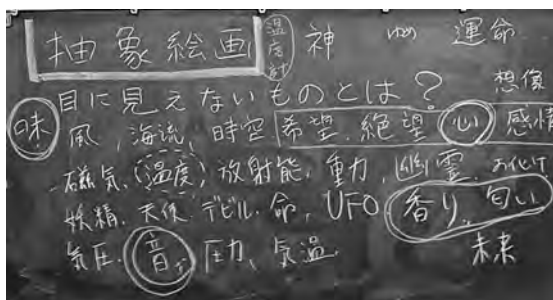 抽象絵画 温度計 神 ゆめ 運命
目に見えないものとは? 想像
味 風、海流、時空 希望、絶望 心 感情
磁気、温度、放射能、重力、幽霊、お化け
妖精、天使、デビル、命、UFO 香り、匂い
気圧、音、圧力、気温 未来